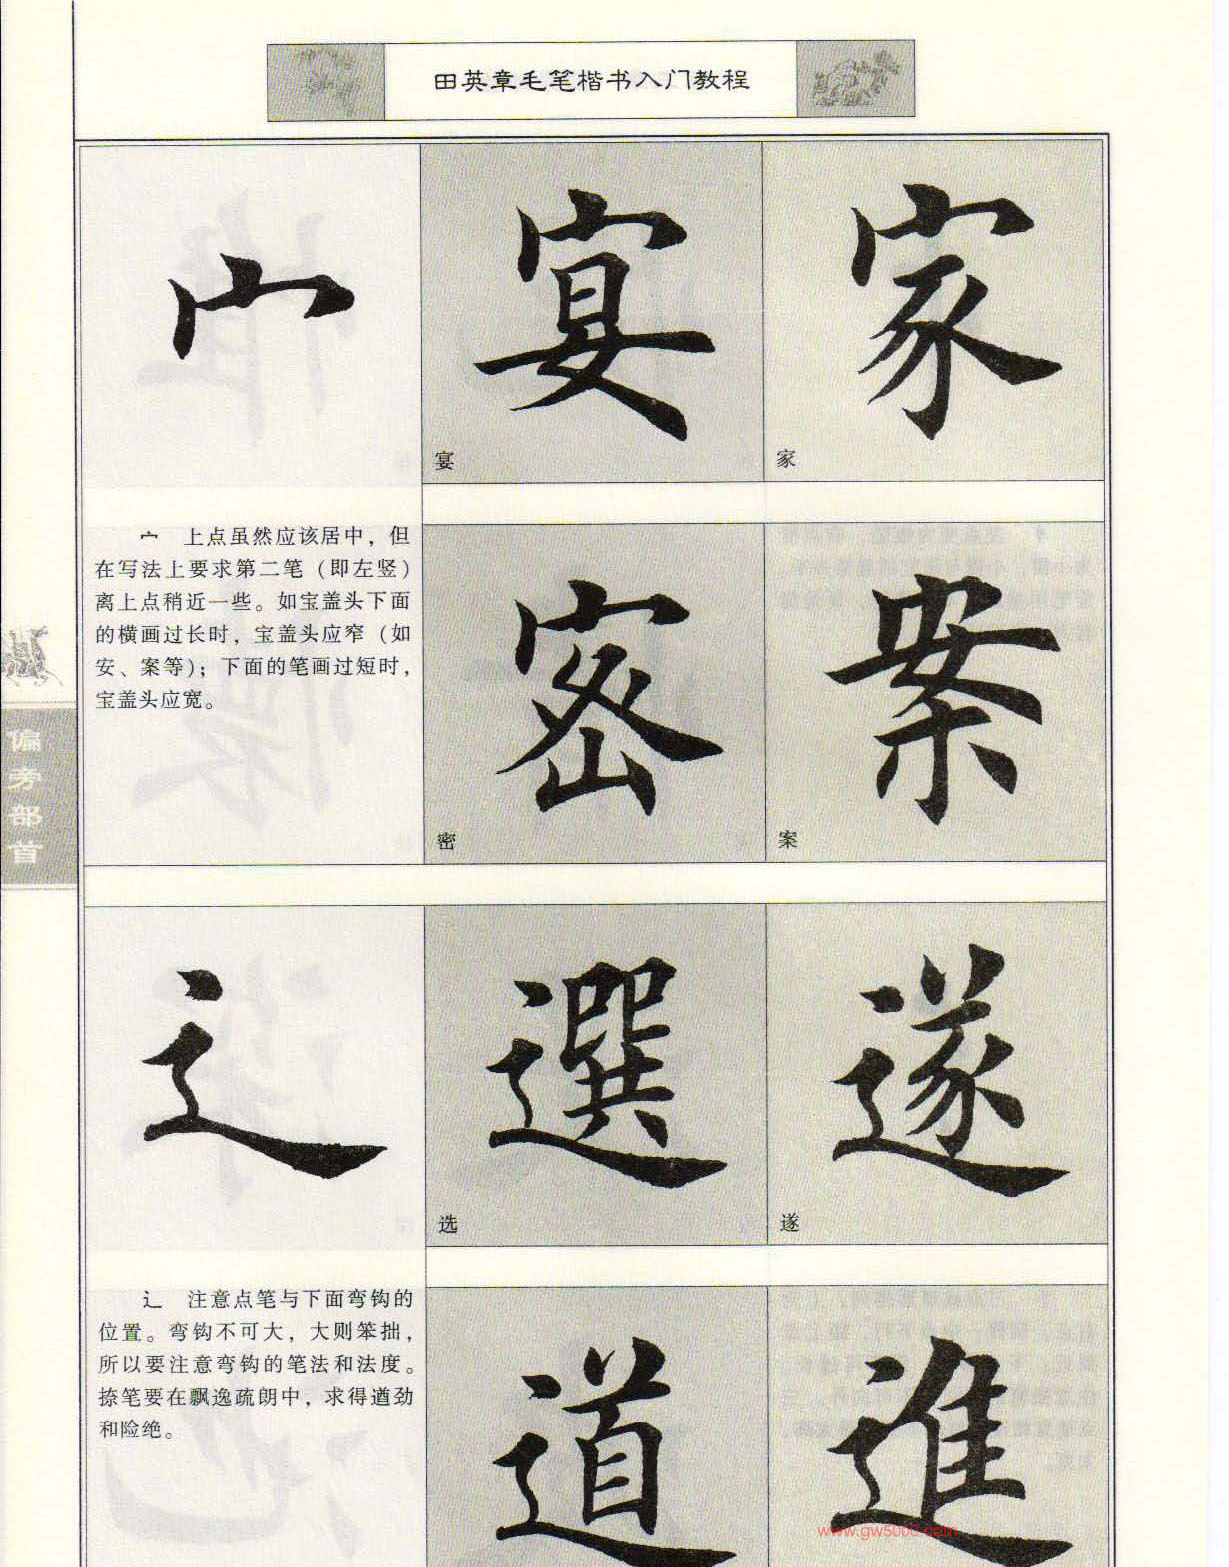 田英章毛笔楷书入门教程
宀
宴
宴
家
家
宀 上点虽然应该居中，但
在写法上要求第二笔（即左竖）
离上点稍近一些。如宝盖头下面
的横画过长时，宝盖头应窄（如
安、案等）；下面的笔画过短时，
宝盖头应宽。
密
密
案
案
偏旁部首
辶
選
选
遂
遂
辶 注意点笔与下面弯钩的
位置。弯钩不可大，大则笨拙，
所以要注意弯钩的笔法和法度。
捺笔要在飘逸疏朗中，求得遒劲
和险绝。
道
進